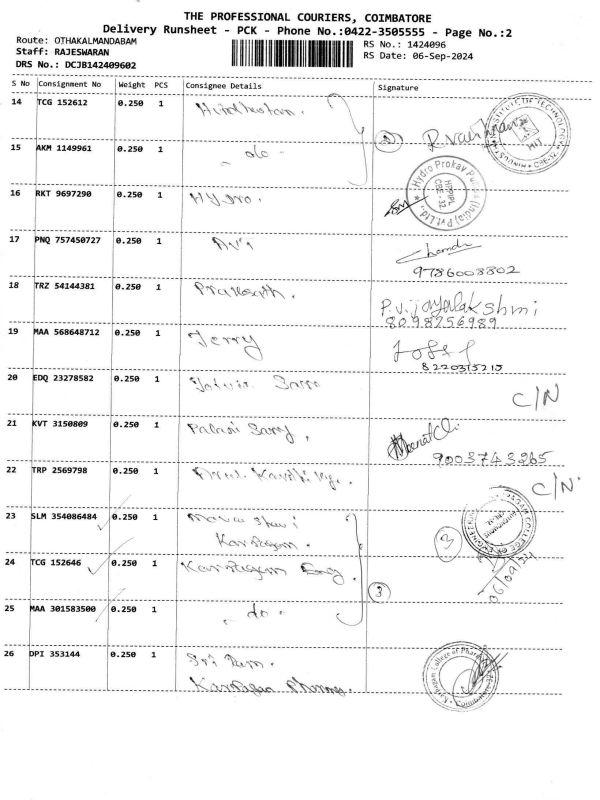 THE PROFESSIONAL COURIERS, COIMBATORE
Delivery Runsheet - PCK - Phone No.:0422-3505555 - Page No.:2
Route: OTHAKALMANDABAM
RS No.: 1424096
Staff: RAJESWARAN
RS Date: 06-Sep-2024
DRS No.: DCJB142409602
S No Consignment No Weight PCS Consignee Details Signature
14 TCG 152612 0.250 1 Hindhustan.
15 AKM 1149961 0.250 1 - do - 2
16 RKT 9697290 0.250 1 Hydro. Hydro Prokav Pumps (India) Pvt.Ltd., HPPIPL CBE - 32
17 PNQ 757450727 0.250 1
9786008802
18 TRZ 54144381 0.250 1 Prakasath. P.vijayalakshmi
8098756989
19 MAA 568648712 0.250 1 Jerry
8220315215
20 EDQ 23278582 0.250 1 C/N
21 KVT 3150809 0.250 1 Palani Samy,
9003743265
22 TRP 2569798 0.250 1 C/N
23 SLM 354086484 0.250 1
Karpagam. 3
24 TCG 152646 0.250 1 Karpagam Eng. 3 06/09/24
25 MAA 301583500 0.250 1 - do -
26 DPI 353144 0.250 1 Sri Ram.
Karpagam Pharmacy.